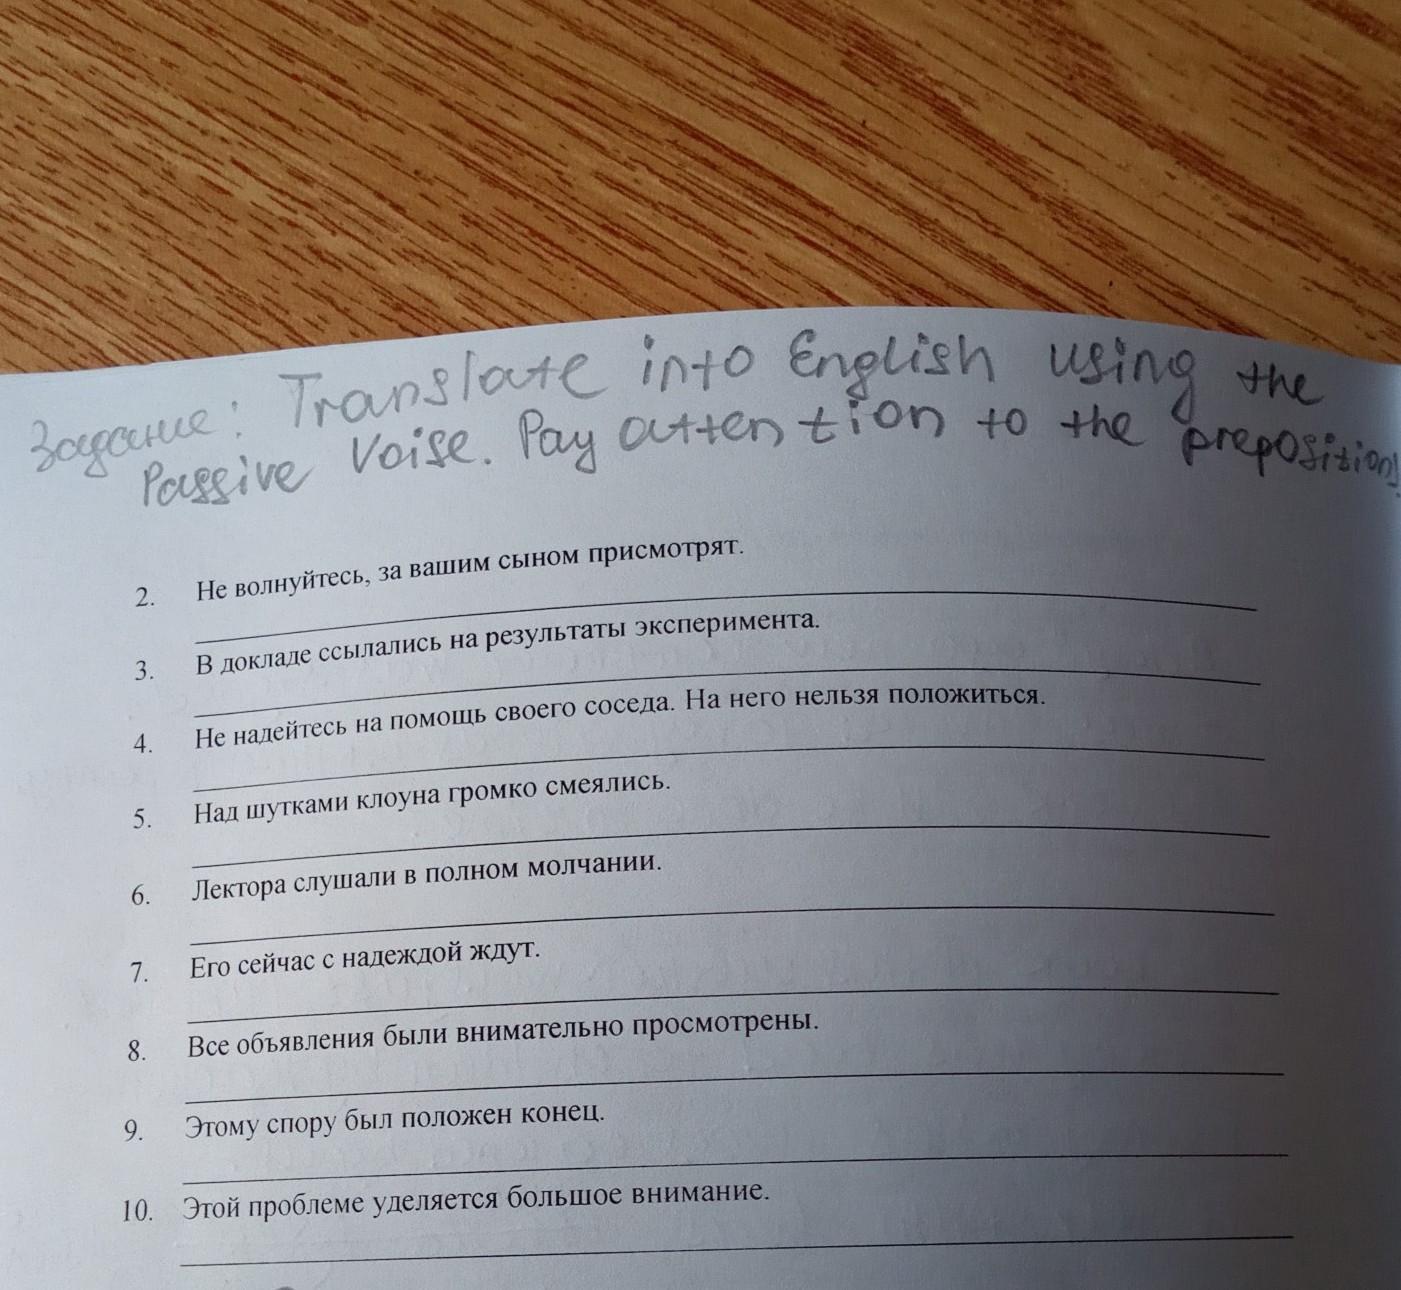 Задание: Translate into English using the
Passive Voise. Pay attention to the prepositions!
2. Не волнуйтесь, за вашим сыном присмотрят.
3. В докладе ссылались на результаты эксперимента.
4. Не надейтесь на помощь своего соседа. На него нельзя положиться.
5. Над шутками клоуна громко смеялись.
6. Лектора слушали в полном молчании.
7. Его сейчас с надеждой ждут.
8. Все объявления были внимательно просмотрены.
9. Этому спору был положен конец.
10. Этой проблеме уделяется большое внимание.